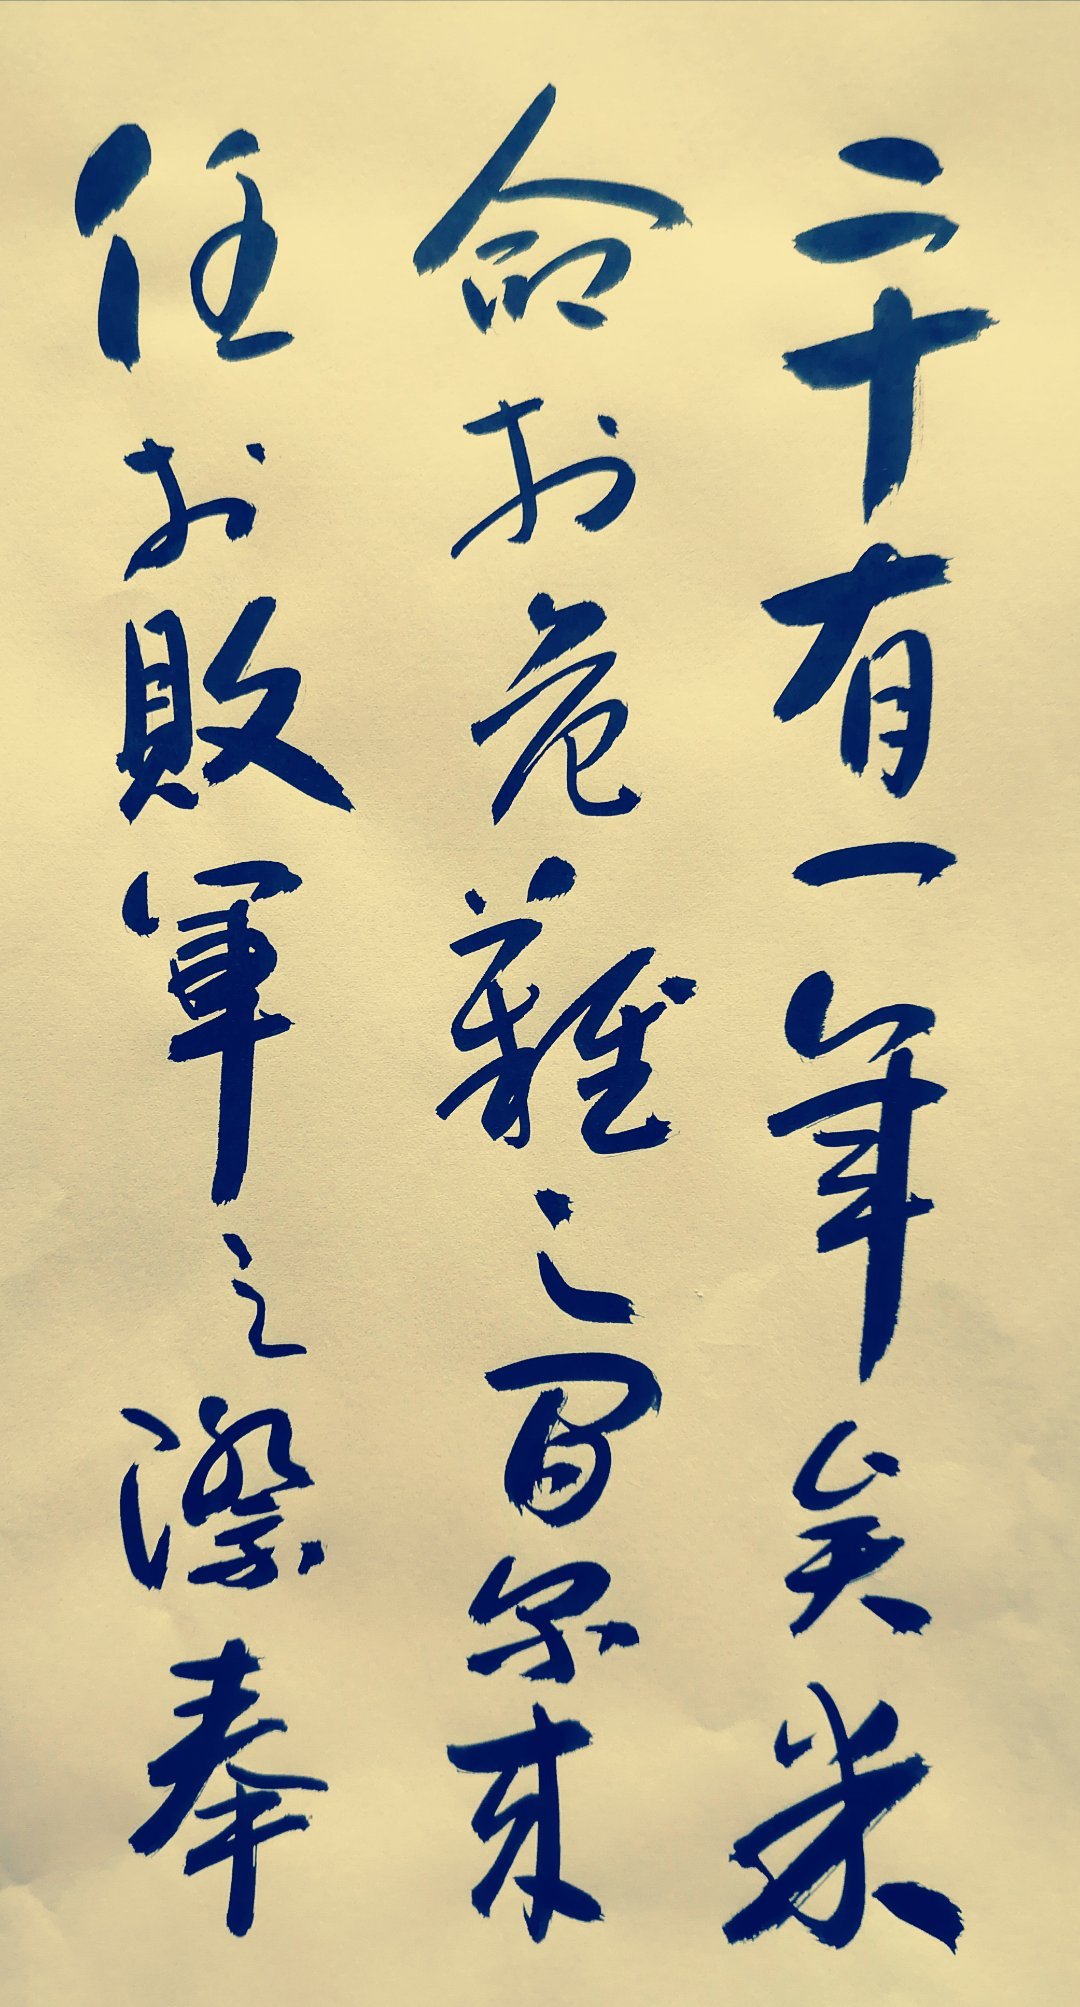 任於敗軍之際奉
命於危難之間尔来
二十有一年矣米